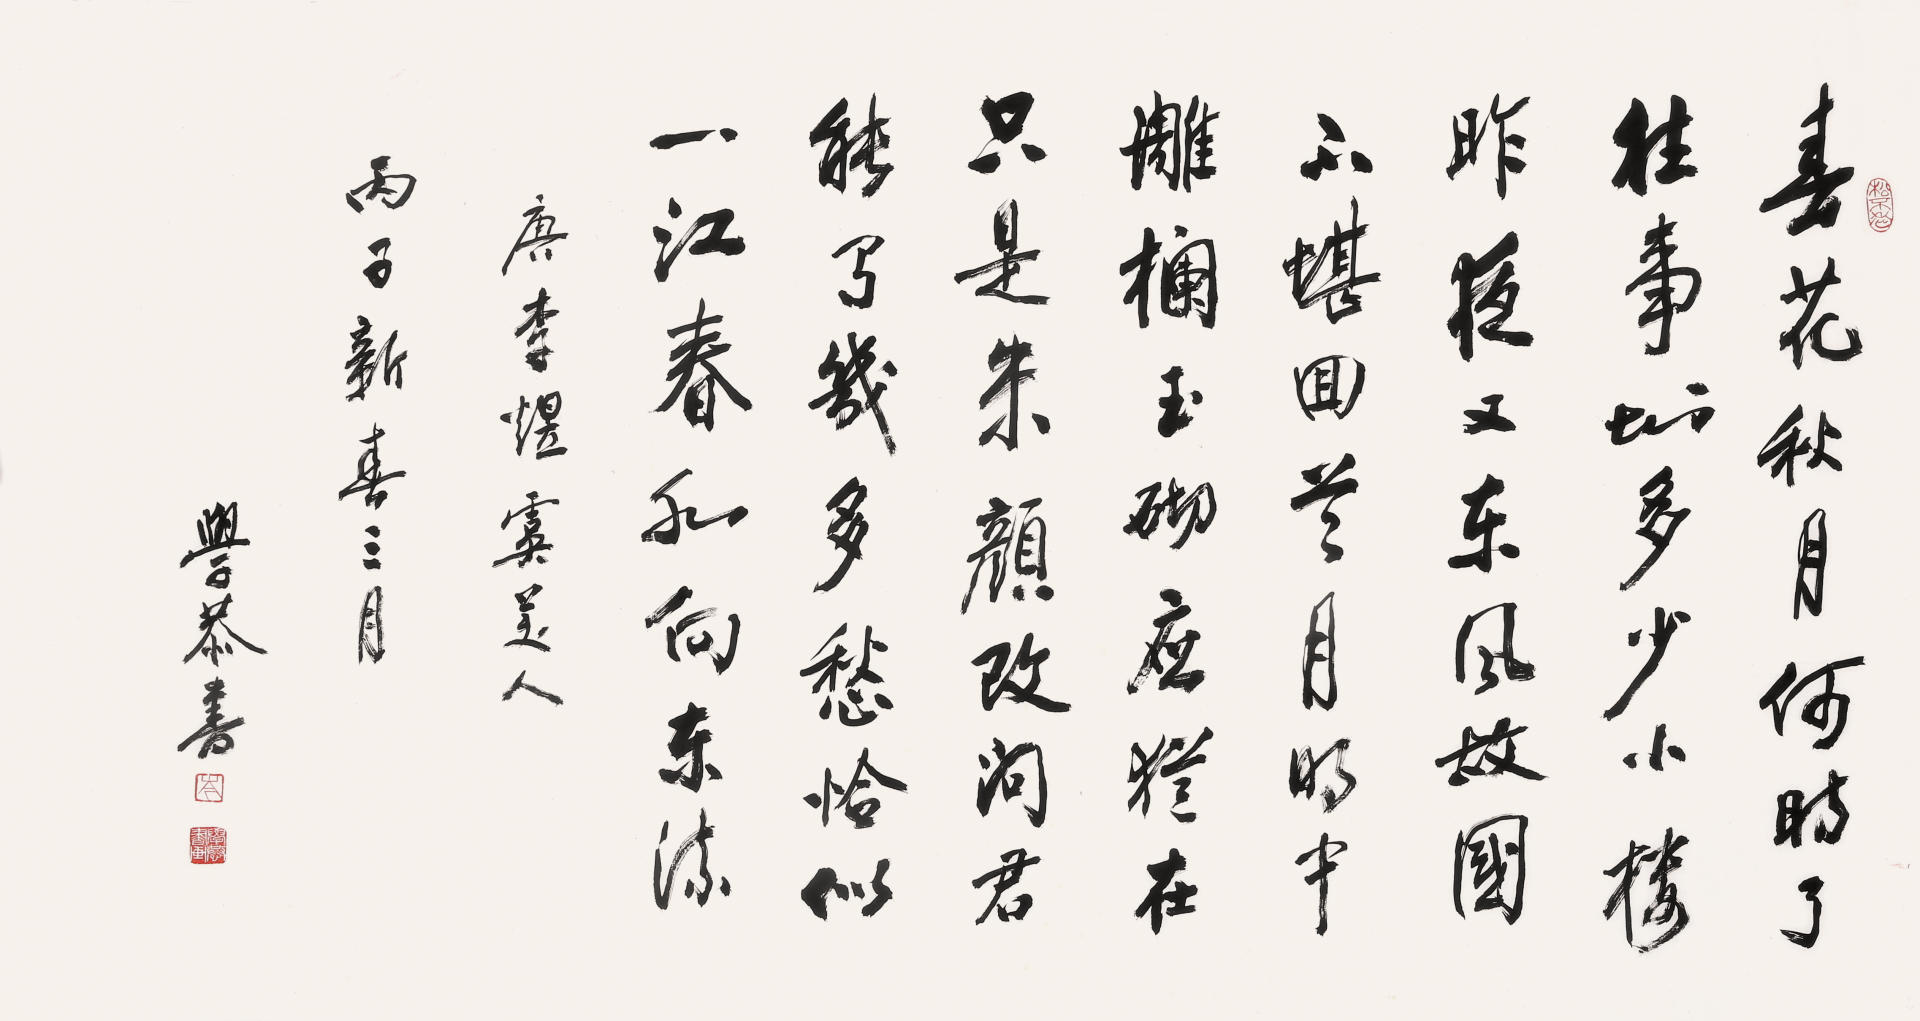 春花秋月何時了
往事知多少小楼
昨夜又东風故國
不堪回首月明中
雕欄玉砌應猶在
只是朱顔改问君
能有幾多愁恰似
一江春水向东流
唐李煜虞美人
丙子新春三月
學恭書
岑